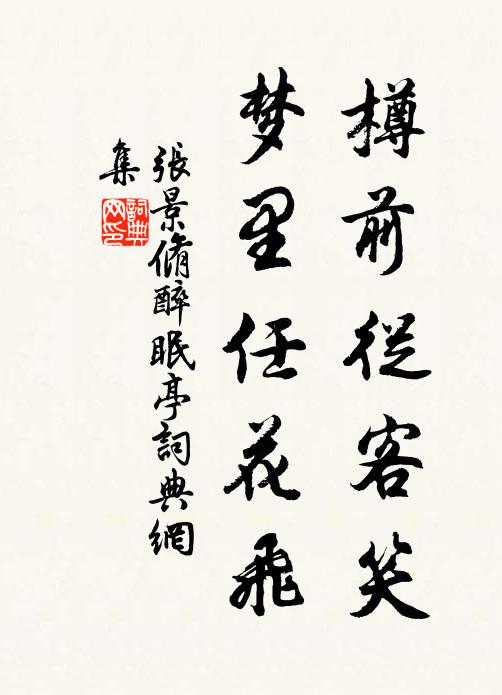 樽前從客笑
梦里任花飛
張景脩醉眠亭詞典網
集
詞典
网印